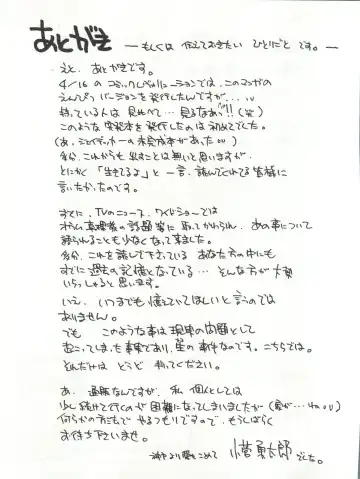 あとがき
―もしくは 伝えておきたい ひとりごと です。―
えと、あとがきです。
4/16 の コミックレヴォリューションでは、このマンガの
えんぴつバージョンを発行したんですが…、
持っている人は 見比べて… 見るなぁっ!!(笑)
このような 突発本を発行したのは初めてでした。
多分、これからも 出すことは無いと思いますが、
とにかく「生きてるよ」と一言、読んでくれてる皆様に
言いたかったのです。
すでに、TVのニュース・ワイドショーでは
オウム真理教の話題等に 取ってかわられ、あの事について
語られることも少なくなって来ました。
多分、これを読んで下さっている あなた方の中にも
すでに過去の記憶となっている… そんな方が大勢
いらっしゃると思います。
いえ、いつまでも憶えていてほしいと言うのでは
ありません。
でも このような事は現実の内質として
起こってしまった事実であり、星の事件なのです。こちらでは。
それだけは どうぞ 知ってください。
あ、通販なんですが、私 個人としては
少し続けて行くのが困難になってしまいましたが
何らかの方法でやるつもりですので、もうしばらく
お待ち下さいませ。
神戸より愛をこめて 小菅勇太郎 でした。